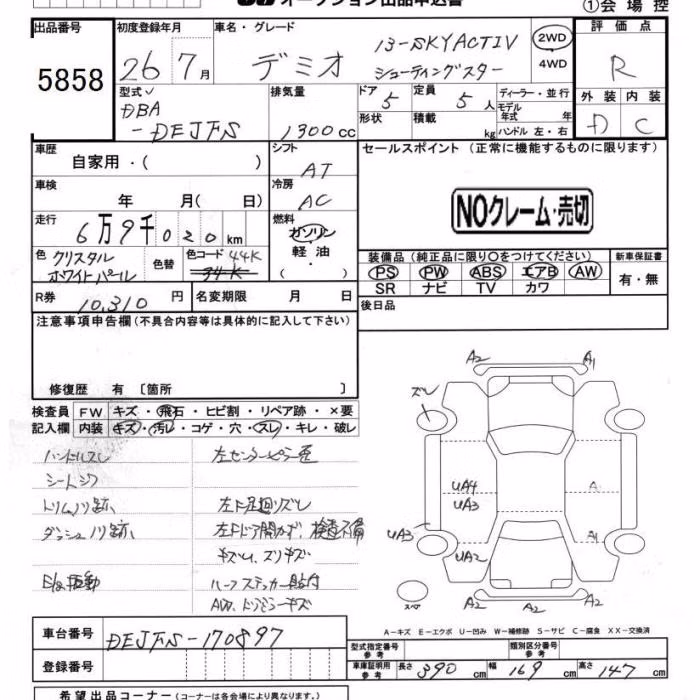 オークション出品申込書
①会場控
出品番号 初度登録年月 車名・グレード 評価点
5858 26年 7月 デミオ 13-SKYACTIV シューティングスター 2WD 4WD R
型式 DBA-DEJFS 排気量 1300cc ドア 5 定員 5人 ディーラー・並行
形状 積載 kg モデル年式 年 ハンドル 左・右
外装 内装
D C
車歴 自家用・( ) シフト AT
セールスポイント(正常に機能するものに限ります)
車検 年 月( 日) 冷房 AC
NOクレーム・売切
走行 6万9千020km 燃料 ガソリン 軽油 ・( )
色 クリスタルホワイトパール 色替 色コード 44K 34K
装備品(純正品に限り○をつけてください) 新車保証書
PS PW ABS エアB AW 有・無
SR ナビ TV カワ
R券 10,310円 名変期限 月 日
後日品
注意事項申告欄(不具合内容等は具体的に記入して下さい)
修復歴 有 〔箇所 〕
検査員記入欄 FW キズ・飛石・ヒビ割・リペア跡・×要
内装 キズ・汚レ・コゲ・穴・スレ・キレ・破レ
ハンドルスレ 左センターピラー歪
シートシワ
トリムノリ跡 左下足廻リズレ
ダッシュノリ跡 左Fドア開カズ、検査不備
キズU、スリキズ
E/g振動 ハーフステッカー貼付
A2 A1
ズレ
UA4
UA3
A
UA3
A1
UA2
A2 A2
スペア
A-キズ E-エクボ U-凹み W-補修跡 S-サビ C-腐食 XX-交換済
車台番号 DEJFS-170897
型式指定番号 参考 類別区分番号 参考
登録番号
車庫証明用 参考 長さ 390cm 幅 169cm 高さ 147cm
希望出品コーナー(コーナーは各会場により異なります。)